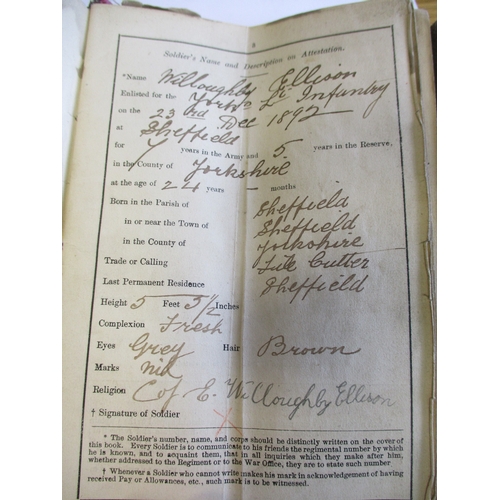 Soldier's Name and Description on Attestation.
*Name Willoughby Ellison
Enlisted for the Yorks Lt Infantry
on the 23rd Dec 1892
at Sheffield
for 7 years in the Army and 5 years in the Reserve,
in the County of Yorkshire
at the age of 24 years — months
Born in the Parish of Sheffield
in or near the Town of Sheffield
in the County of Yorkshire
Trade or Calling File Cutter
Last Permanent Residence Sheffield
Height 5 Feet 5½ Inches
Complexion Fresh
Eyes Grey Hair Brown
Marks Nil
Religion C of E. Willoughby Ellison
† Signature of Soldier X
* The Soldier's number, name, and corps should be distinctly written on the cover of
this book. Every Soldier is to communicate to his friends the regimental number by which
he is known, and to acquaint them, that in all inquiries which they make after him,
whether addressed to the Regiment or to the War Office, they are to state such number
† Whenever a Soldier who cannot write makes his mark in acknowledgement of having
received Pay or Allowances, etc., such mark is to be witnessed.